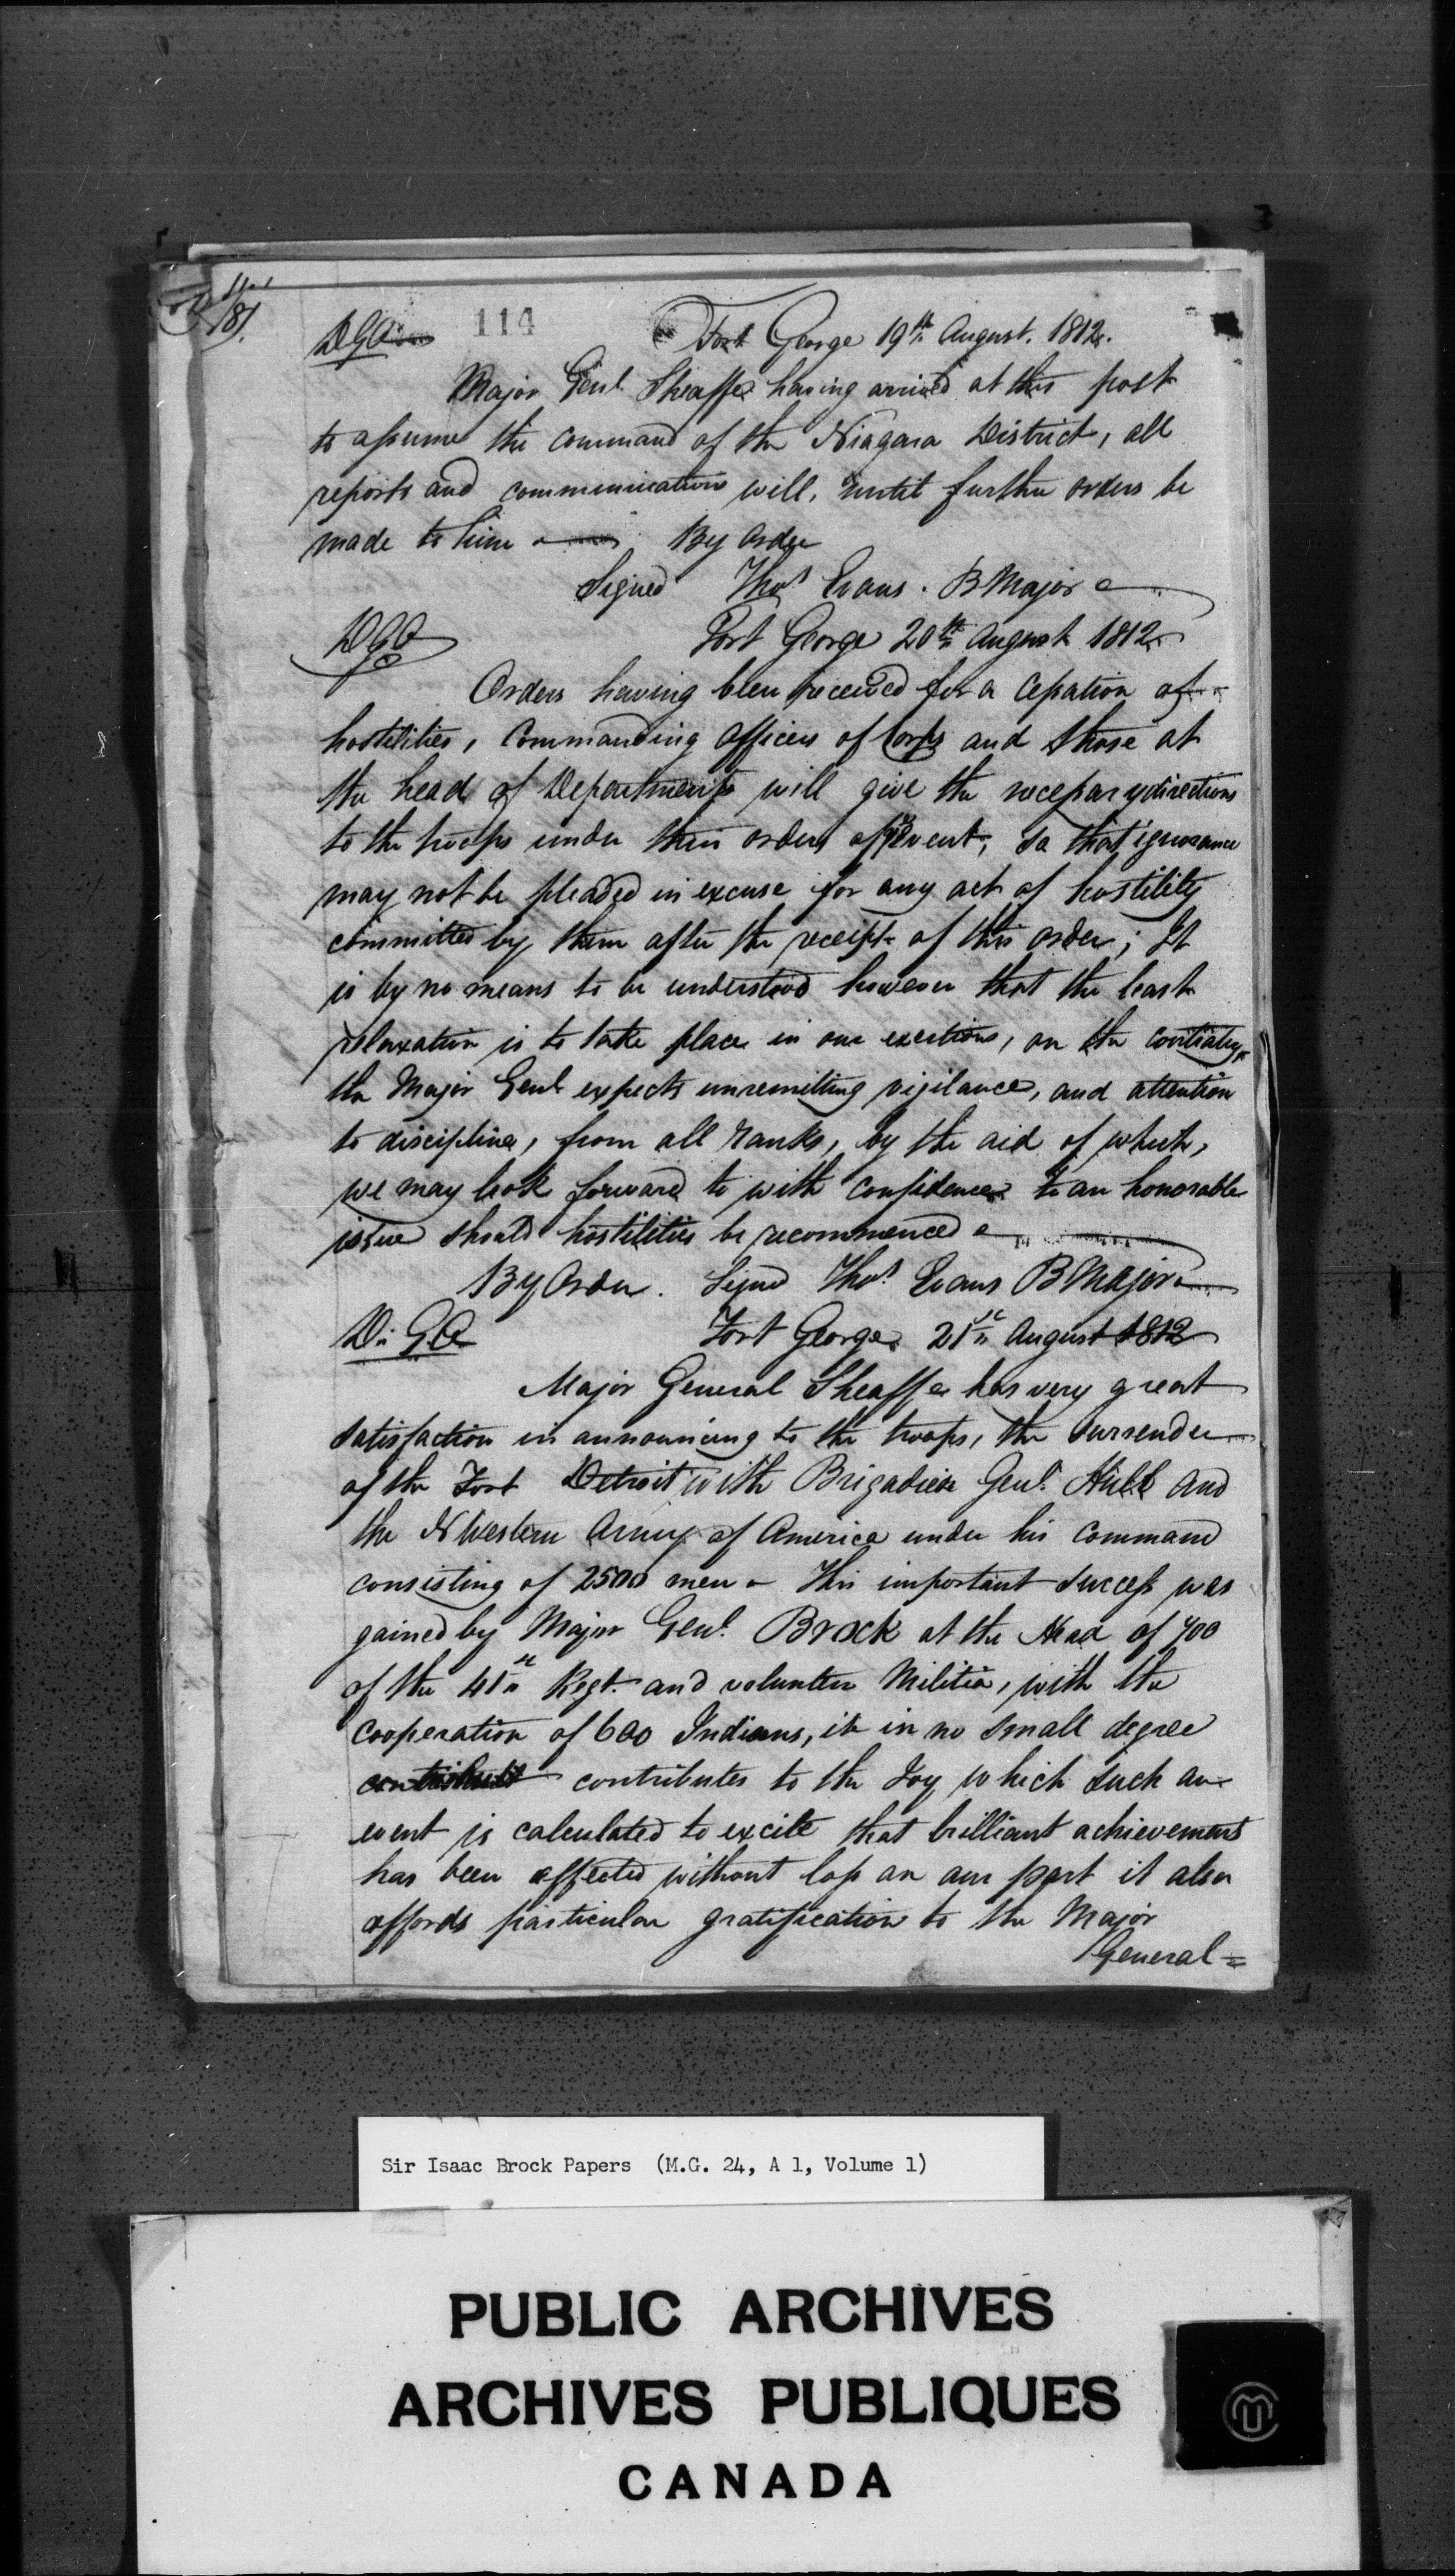 181.
DGO 114 Fort George 19th August. 1812.
Major Genl. Sheaffe having arrived at this post
to assume the command of the Niagara District, all
reports and communications will, until further orders be
made to him By Order
Signed Thos Evans. B Major
DGO Fort George 20th August 1812
Orders having been received for a cessation of
hostilities, Commanding Officers of Corps and those at
the head of Departments will give the necessary directions
to the troops under their orders so that ignorance
may not be pleaded in excuse for any act of hostility
committed by them after the receipt of this order; It
is by no means to be understood however that the least
relaxation is to take place in our exertions, on the contrary,
the Major Genl expects unremitting vigilance, and attention
to discipline, from all ranks, by the aid of which,
we may look forward to with confidence to an honorable
issue should hostilities be recommenced
By Order. Signed Thos. Evans B Major
D. G.O Fort George 21st August 1812
Major General Sheaffe has very great
satisfaction in announcing to the troops, the surrender
of the Fort Detroit with Brigadier Genl. Hull and
the N Western Army of America under his command
consisting of 2500 men - This important success was
gained by Major Genl. Brock at the Head of 700
of the 41st Regt. and volunteer Militia, with the
cooperation of 600 Indians, it in no small degree
contributes to the Joy which such an
event is calculated to excite that brilliant achievement
has been effected without loss on our part it also
affords particular gratification to the Major
General =
Sir Isaac Brock Papers (M.G. 24, A 1, Volume 1)
PUBLIC ARCHIVES
ARCHIVES PUBLIQUES
CANADA